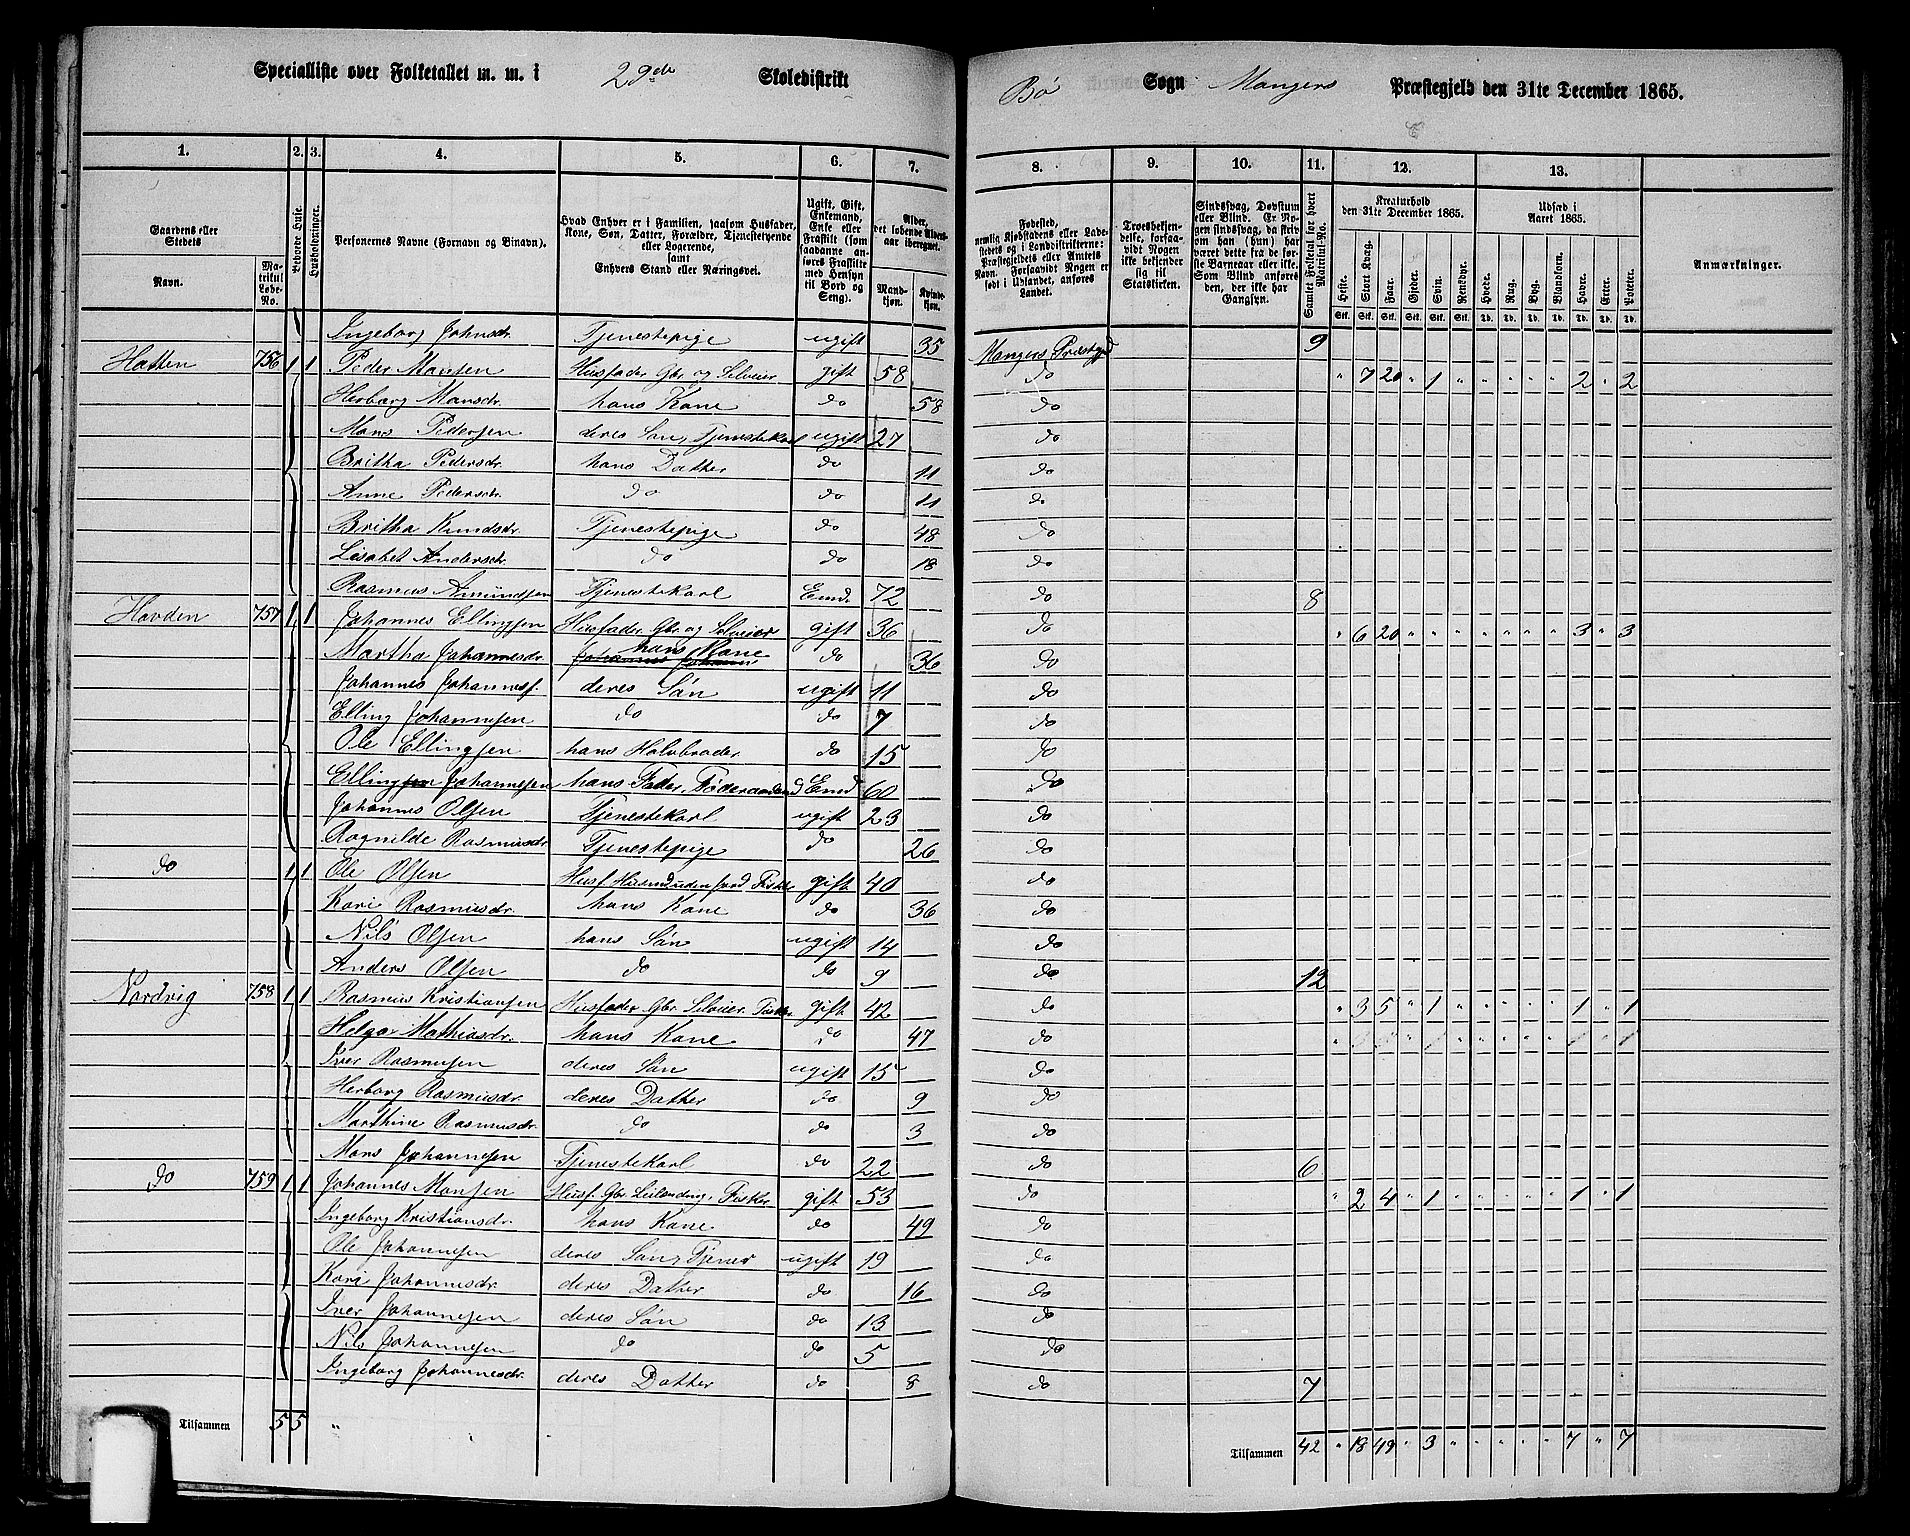 Specialliste over Folketallet m. m. i 29de Skoledistrikt
Bø Sogn Mangers Præstegjeld den 31te December 1865.
1. 2. 3. 4. 5. 6. 7. 8. 9. 10. 11. 12. 13.
Gaardens eller Stedets
Navn.
Matrikul Løbe-No.
Beboede Huse.
Husholdninger.
Personernes Navne (Fornavn og Binavn).
Hvad Enhver er i Familien, saasom Husfader, Kone, Søn, Datter, Forældre, Tjenestetyende eller Logerende, samt Enhvers Stand eller Næringsvei.
Ugift, Gift, Enkemand, Enke eller Fraskilt (som saadanne anføres Fraskilte med Hensyn til Bord og Seng).
Alder, det løbende Aldersaar iberegnet.
Mandkjøn.
Kvindekjøn.
Fødested, nemlig Kjøbstadens eller Ladestedets eller i Landdistrikterne: Præstegjeldets eller Amtets Navn. Forsaavidt Nogen er født i Udlandet, anføres Landet.
Troesbekjendelse, forsaavidt Nogen ikke bekjender sig til Statskirken.
Sindssvag, Døvstum eller Blind. Er Nogen sindssvag, da skriv om han (hun) har været dette fra de første Barneaar eller ikke. Som Blind anføres den, der ikke har Gangsyn.
Samlet Folketal for hvert Matrikul-No.
Kreaturhold den 31te December 1865.
Heste. Stort Kvæg. Faar. Gjeder. Svin. Rensdyr.
Udsæd i Aaret 1865.
Hvede. Rug. Byg. Blandkorn. Havre. Erter. Poteter.
Anmærkninger.
Ingeborg Johnsdr. Tjenestepige ugift 35 Mangers Præstegjd 9
Hatten 756 1 1 Peder Monsen Husfader Gbr. og Selveier gift 58 do " 7 20 " 1 " " " " " 2 " 2
Herborg Monsdr. hans Kone do 58 do
Mons Pedersen deres Søn, Tjenestekarl ugift 27 do
Britha Pedersdr. hans Datter do 11 do
Anne Pedersdr. do do 11 do
Britha Knudsdr. Tjenestepige do 48 do
Lisabet Andersdr. do do 18 do
Rasmus Amundsen Tjenestekarl Emd. 72 do 8
Hovden 757 1 1 Johannes Ellingsen Husfader Gbr. og Selveier gift 36 do " 6 20 " " " " " " " 3 " 3
Martha Johannesdr. hans Kone do 36 do
Johannes Johannesf. deres Søn ugift 11 do
Elling Johannesen do do 7 do
Ole Ellingsen hans Halvbroder do 15 do
Elling Johannesen hans Fader, Føderaadsmd Emd 60 do
Johannes Olsen Tjenestekarl ugift 23 do
Ragnilde Rasmusdr. Tjenestepige do 26 do
do 1 1 Ole Olsen Husf. Husmd uden Jord Fisker gift 40 do
Kari Rasmusdr. hans Kone do 36 do
Nils Olsen hans Søn ugift 14 do
Anders Olsen do do 9 do 12
Nordvig 758 1 1 Rasmus Kristiansen Husfader Gbr. Selveier Fisker gift 42 do " 3 5 " 1 " " " " " 1 " 1
Helga Mathiasdr. hans Kone do 47 do
Iver Rasmusen deres Søn ugift 15 do
Herborg Rasmusdr. deres Datter do 9 do
Marthine Rasmusdr. do do 3 do
Mons Johannesen Tjenestekarl do 22 do 6
do 759 1 1 Johannes Monsen Husf. Gbr. Leilending, Fisker gift 53 do " 2 4 " 1 " " " " " 1 " 1
Ingeborg Kristiansdr. hans Kone do 49 do
Ole Johannesen deres Søn, Tjener ugift 19 do
Kari Johannesdr. deres Datter do 16 do
Iver Johannesen deres Søn do 13 do
Nils Johannesen do do 5 do
Ingeborg Johannesdr. deres Datter do 8 do 7
Tilsammen 5 5 "
Tilsammen 42 " 18 49 " 3 " " " " " 7 " 7